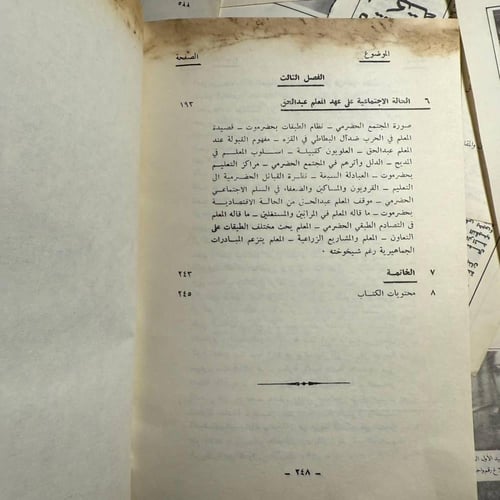 الموضوع
الصفحة
الفصل الثالث
٦ الحالة الاجتماعية على عهد المعلم عبدالحق ١٩٣
صورة المجتمع الحضرمي ــ نظام الطبقات بحضرموت ــ قصيدة
المعلم في الحرب ضد آل البطاطي في القزه ــ مفهوم القبولة عند
المعلم عبدالحق ــ العلويون كقبيلة ــ اسلوب المعلم في
المديح ــ الدلل وأثرهم في المجتمع الحضرمي ــ مراكز التعليم
بحضرموت ــ العبادلة السبعة ــ نظرة القبائل الحضرمية الى
التعليم ــ القرويون والمساكين والضعفاء في السلم الاجتماعي
الحضرمي ــ موقف المعلم عبدالحق من الحالة الاقتصادية
بحضرموت ــ ما قاله المعلم في المرابين والمستغلين ــ ما قاله المعلم
في التصادم الطبقي الحضرمي ــ المعلم يحث مختلف الطبقات على
التعاون ــ المعلم والمشاريع الزراعية ــ المعلم يتزعم المبادرات
الجماهيرية رغم شيخوخته ٠
٧ الخاتمة ٢٤٣
٨ محتويات الكتاب ٢٤٥
ــ ٢٤٨ ــ